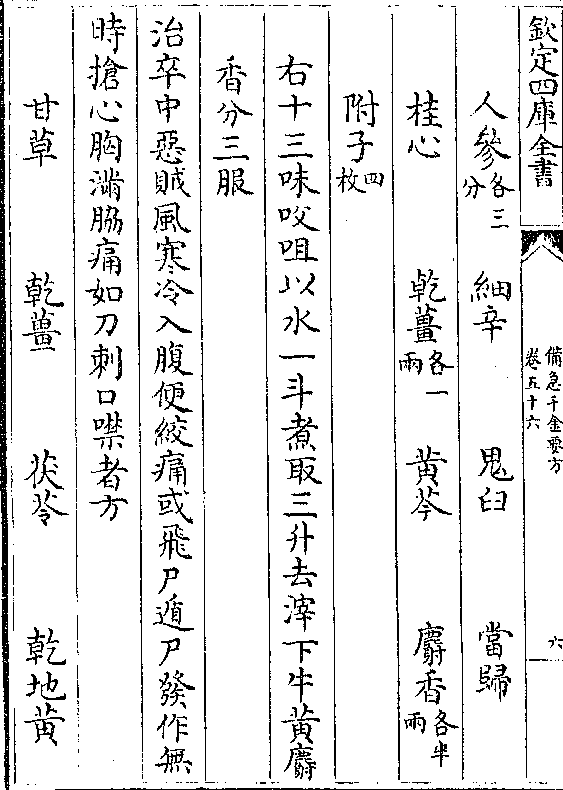 欽定四庫全書
備急千金要方
卷五十六
六
人參各三分 細辛 鬼臼 當歸
桂心 乾薑各一兩 黃芩 麝香各半兩
附子四枚
右十三味㕮咀以水一斗煮取三升去滓下牛黃麝
香分三服
治卒中惡賊風寒冷入腹便絞痛或飛尸遁尸發作無
時搶心胸滿脇痛如刀刺口噤者方
甘草 乾薑 茯苓 乾地黃